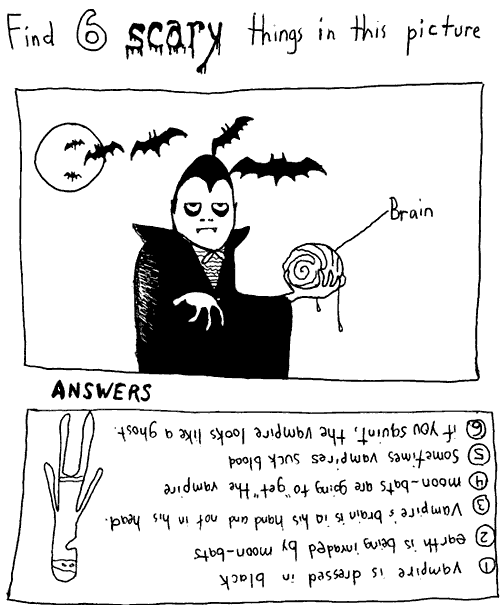 Find 6 scary things in this picture
Brain
ANSWERS
1 vampire is dressed in black
2 earth is being invaded by moon-bats
3 Vampire's brain is in his hand and not in his head.
4 moon-bats are going to "get" the vampire
5 Sometimes vampires suck blood
6 if you squint, the vampire looks like a ghost.